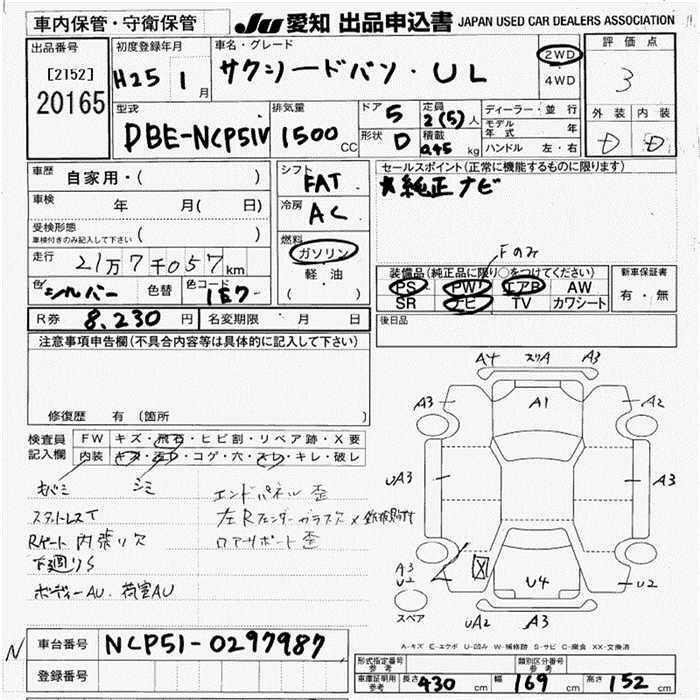 車内保管・守衛保管
JU 愛知 出品申込書 JAPAN USED CAR DEALERS ASSOCIATION
出品番号
[2152]
20165
初度登録年月
H25 1月
車名・グレード
サクシードバン・UL
2WD
4WD
評価点
3
外装 内装
D D
型式
DBE-NCP51V
排気量
1500 CC
ドア 5
形状 D
定員 2(5)人
積載 0.45 kg
ディーラー・並行
モデル年式 年
ハンドル 左・右
車歴 自家用・( )
車検 年 月( 日)
受検形態
車検付きのみ記入して下さい ( )
走行 21万7千057km
色 シルバー 色替 色コード 1E7
シフト
FAT
冷房
AC
燃料
ガソリン
軽油
( )
セールスポイント(正常に機能するものに限ります)
★純正ナビ
Fのみ
装備品(純正品に限り○をつけてください)
PS PW エアB AW
SR ナビ TV カワシート
新車保証書
有・無
R券 8,230 円 名変期限 月 日
後日品
注意事項申告欄(不具合内容等は具体的に記入して下さい)
修復歴 有 (箇所 )
検査員記入欄
FW キズ・飛石・ヒビ割・リペア跡・X要
内装 キズ・汚れ・コゲ・穴・スレ・キレ・破レ
シミ
エンドパネル 歪
スタットレスT
Rゲート内張り欠
ロアサポート歪
下廻りS
ボディーAU、荷室AU
A4 スリA A3
A3 A1 A2
UA3 A3
A3
U2
U4 U2
X
スペア
UA2 A3
A-キズ E-エクボ U-凹み W-補修跡 S-サビ C-腐食 XX-交換済
N
車台番号 NCP51-0297987
登録番号
形式指定番号 参考
類別区分番号 参考
車庫証明用 参考 長さ 430 cm 幅 169 cm 高さ 152 cm